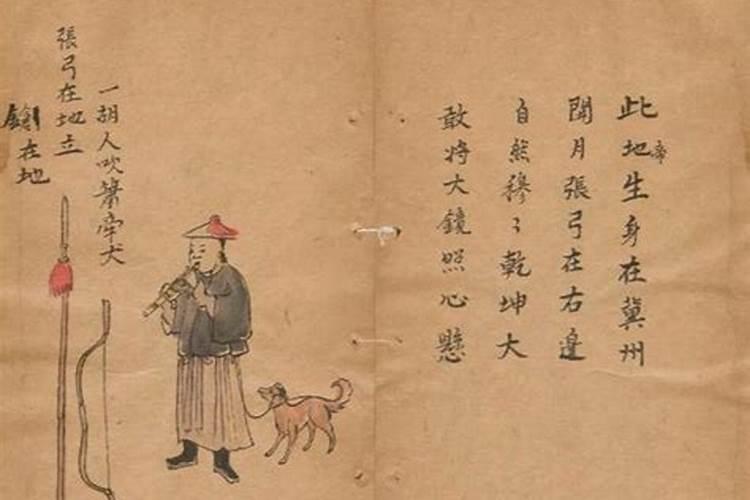 此地生身在冀州
帝
開月張弓在右邊
自然穆々乾坤大
敢将大鏡照心懸
一胡人吹箫牵犬
張弓在地立
鎗在地